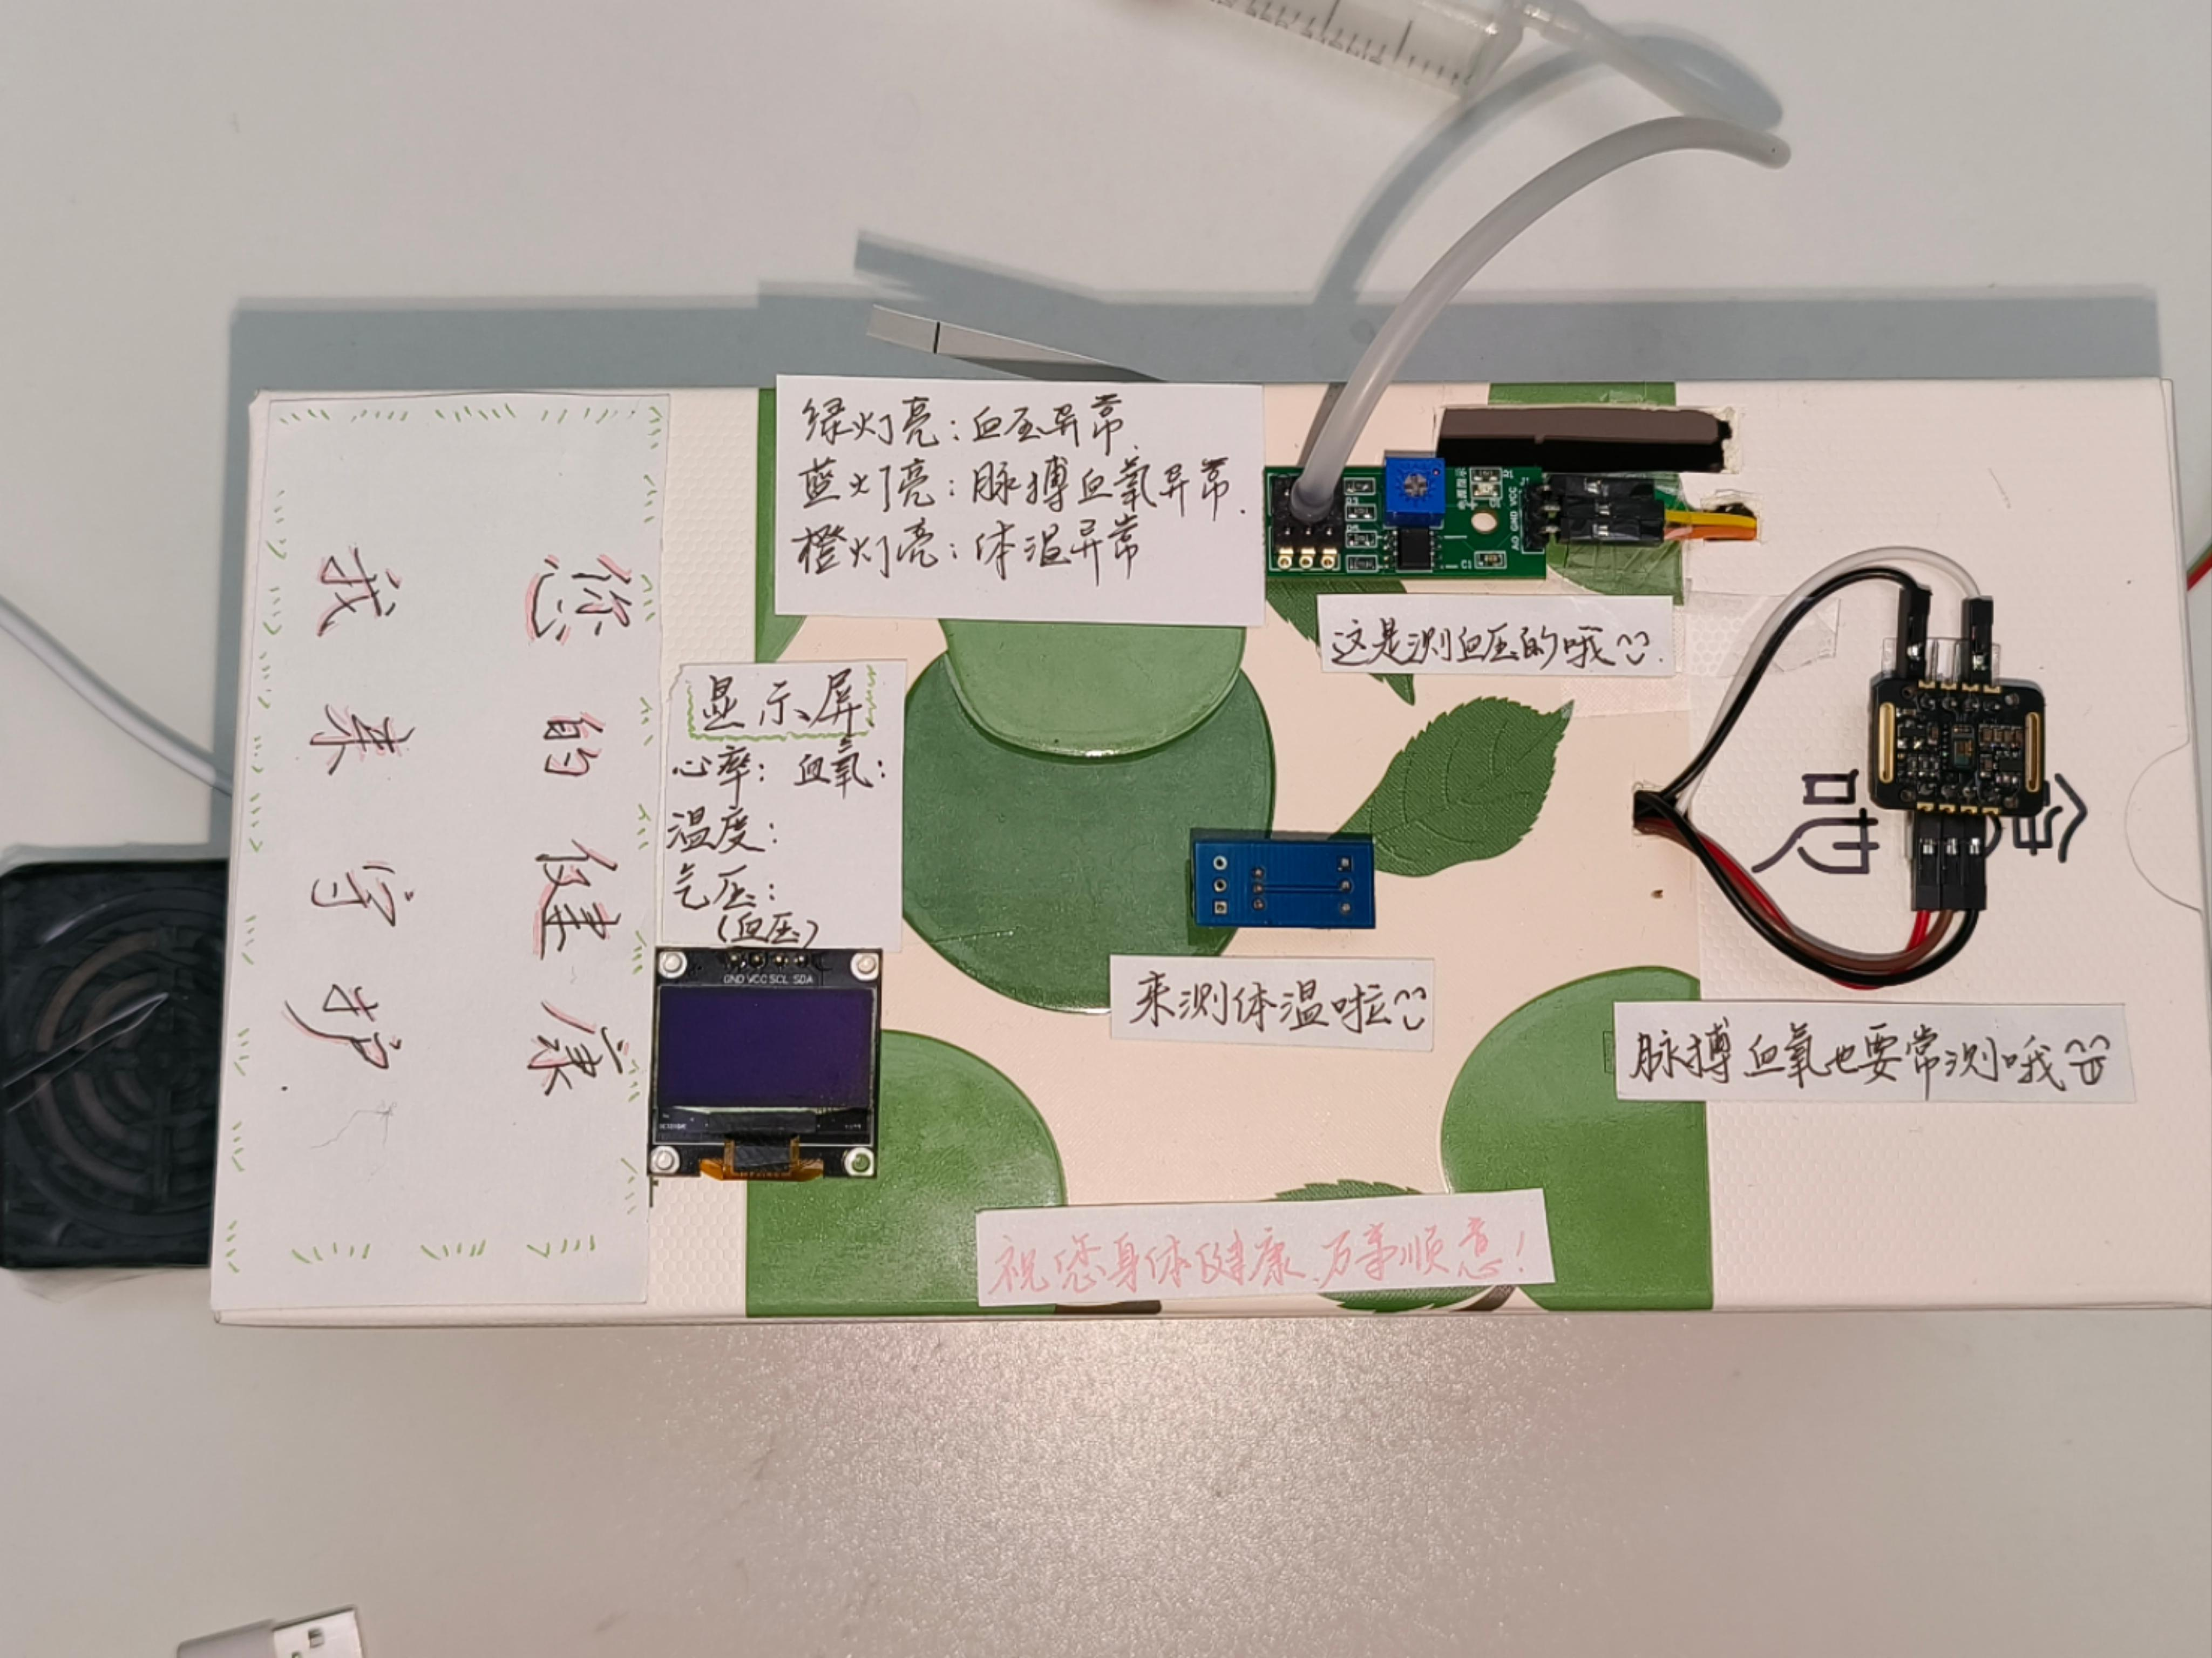 您的健康
我来守护
绿灯亮：血压异常
蓝灯亮：脉搏血氧异常.
橙灯亮：体温异常
这是测血压的哦
显示屏
心率： 血氧：
温度：
气压：
（血压）
GND VCC SCL SDA
来测体温啦
脉搏血氧也要常测哦
祝您身体健康.万事顺意！
AO GND VCC
C1